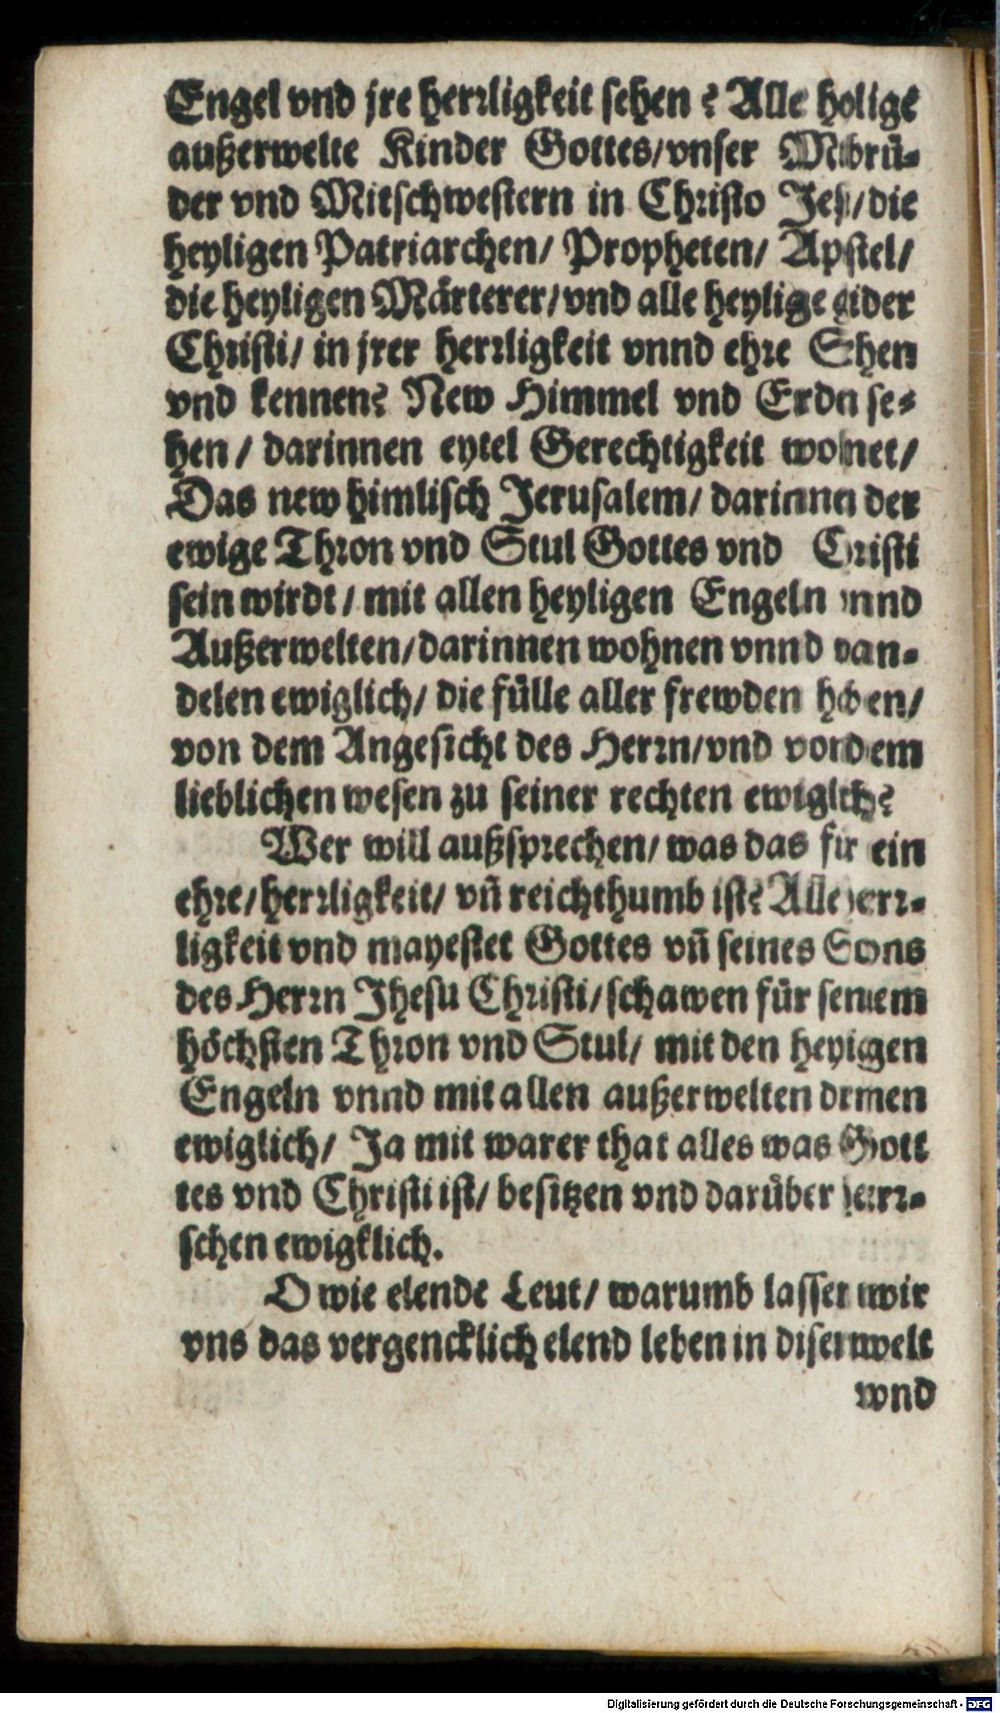 Engel vnd jre herrligkeit sehen? Alle
außerwelte Kinder Gottes/ vnser
der vnd Mitschwestern in Christo die
heyligen Patriarchen/ Propheten/
die heyligen Märterer/ vnd alle heylige
Christi/ in jrer herrligkeit vnnd ehre
vnd kennen? New Himmel vnd se-
hen/ darinnen eytel Gerechtigkeit
Das new himlisch Jerusalem/ der
ewige Thron vnd Stul Gottes vnd
sein wirdt/ mit allen heyligen Engeln
Außerwelten/ darinnen wohnen vnnd
delen ewiglich/ die fülle aller frewden
von dem Angesicht des Herrn/ vnd von dem
lieblichen wesen zu seiner rechten
Wer will außsprechen/ was das ein
ehre/ herrligkeit/ vñ reichthumb ist? Alle
ligkeit vnd mayestet Gottes vñ seines Sons
des Herrn Jhesu Christi/ schawen für
höchsten Thron vnd Stul/ mit den
Engeln vnnd mit allen außerwelten
ewiglich/ Ja mit warer that alles was
tes vnd Christi ist/ besitzen vnd darüber
schen ewigklich.
O wie elende Leut/ warumb
vns das vergencklich elend leben in
wnd
Digitalisierung gefördert durch die Deutsche Forschungsgemeinschaft - DFG